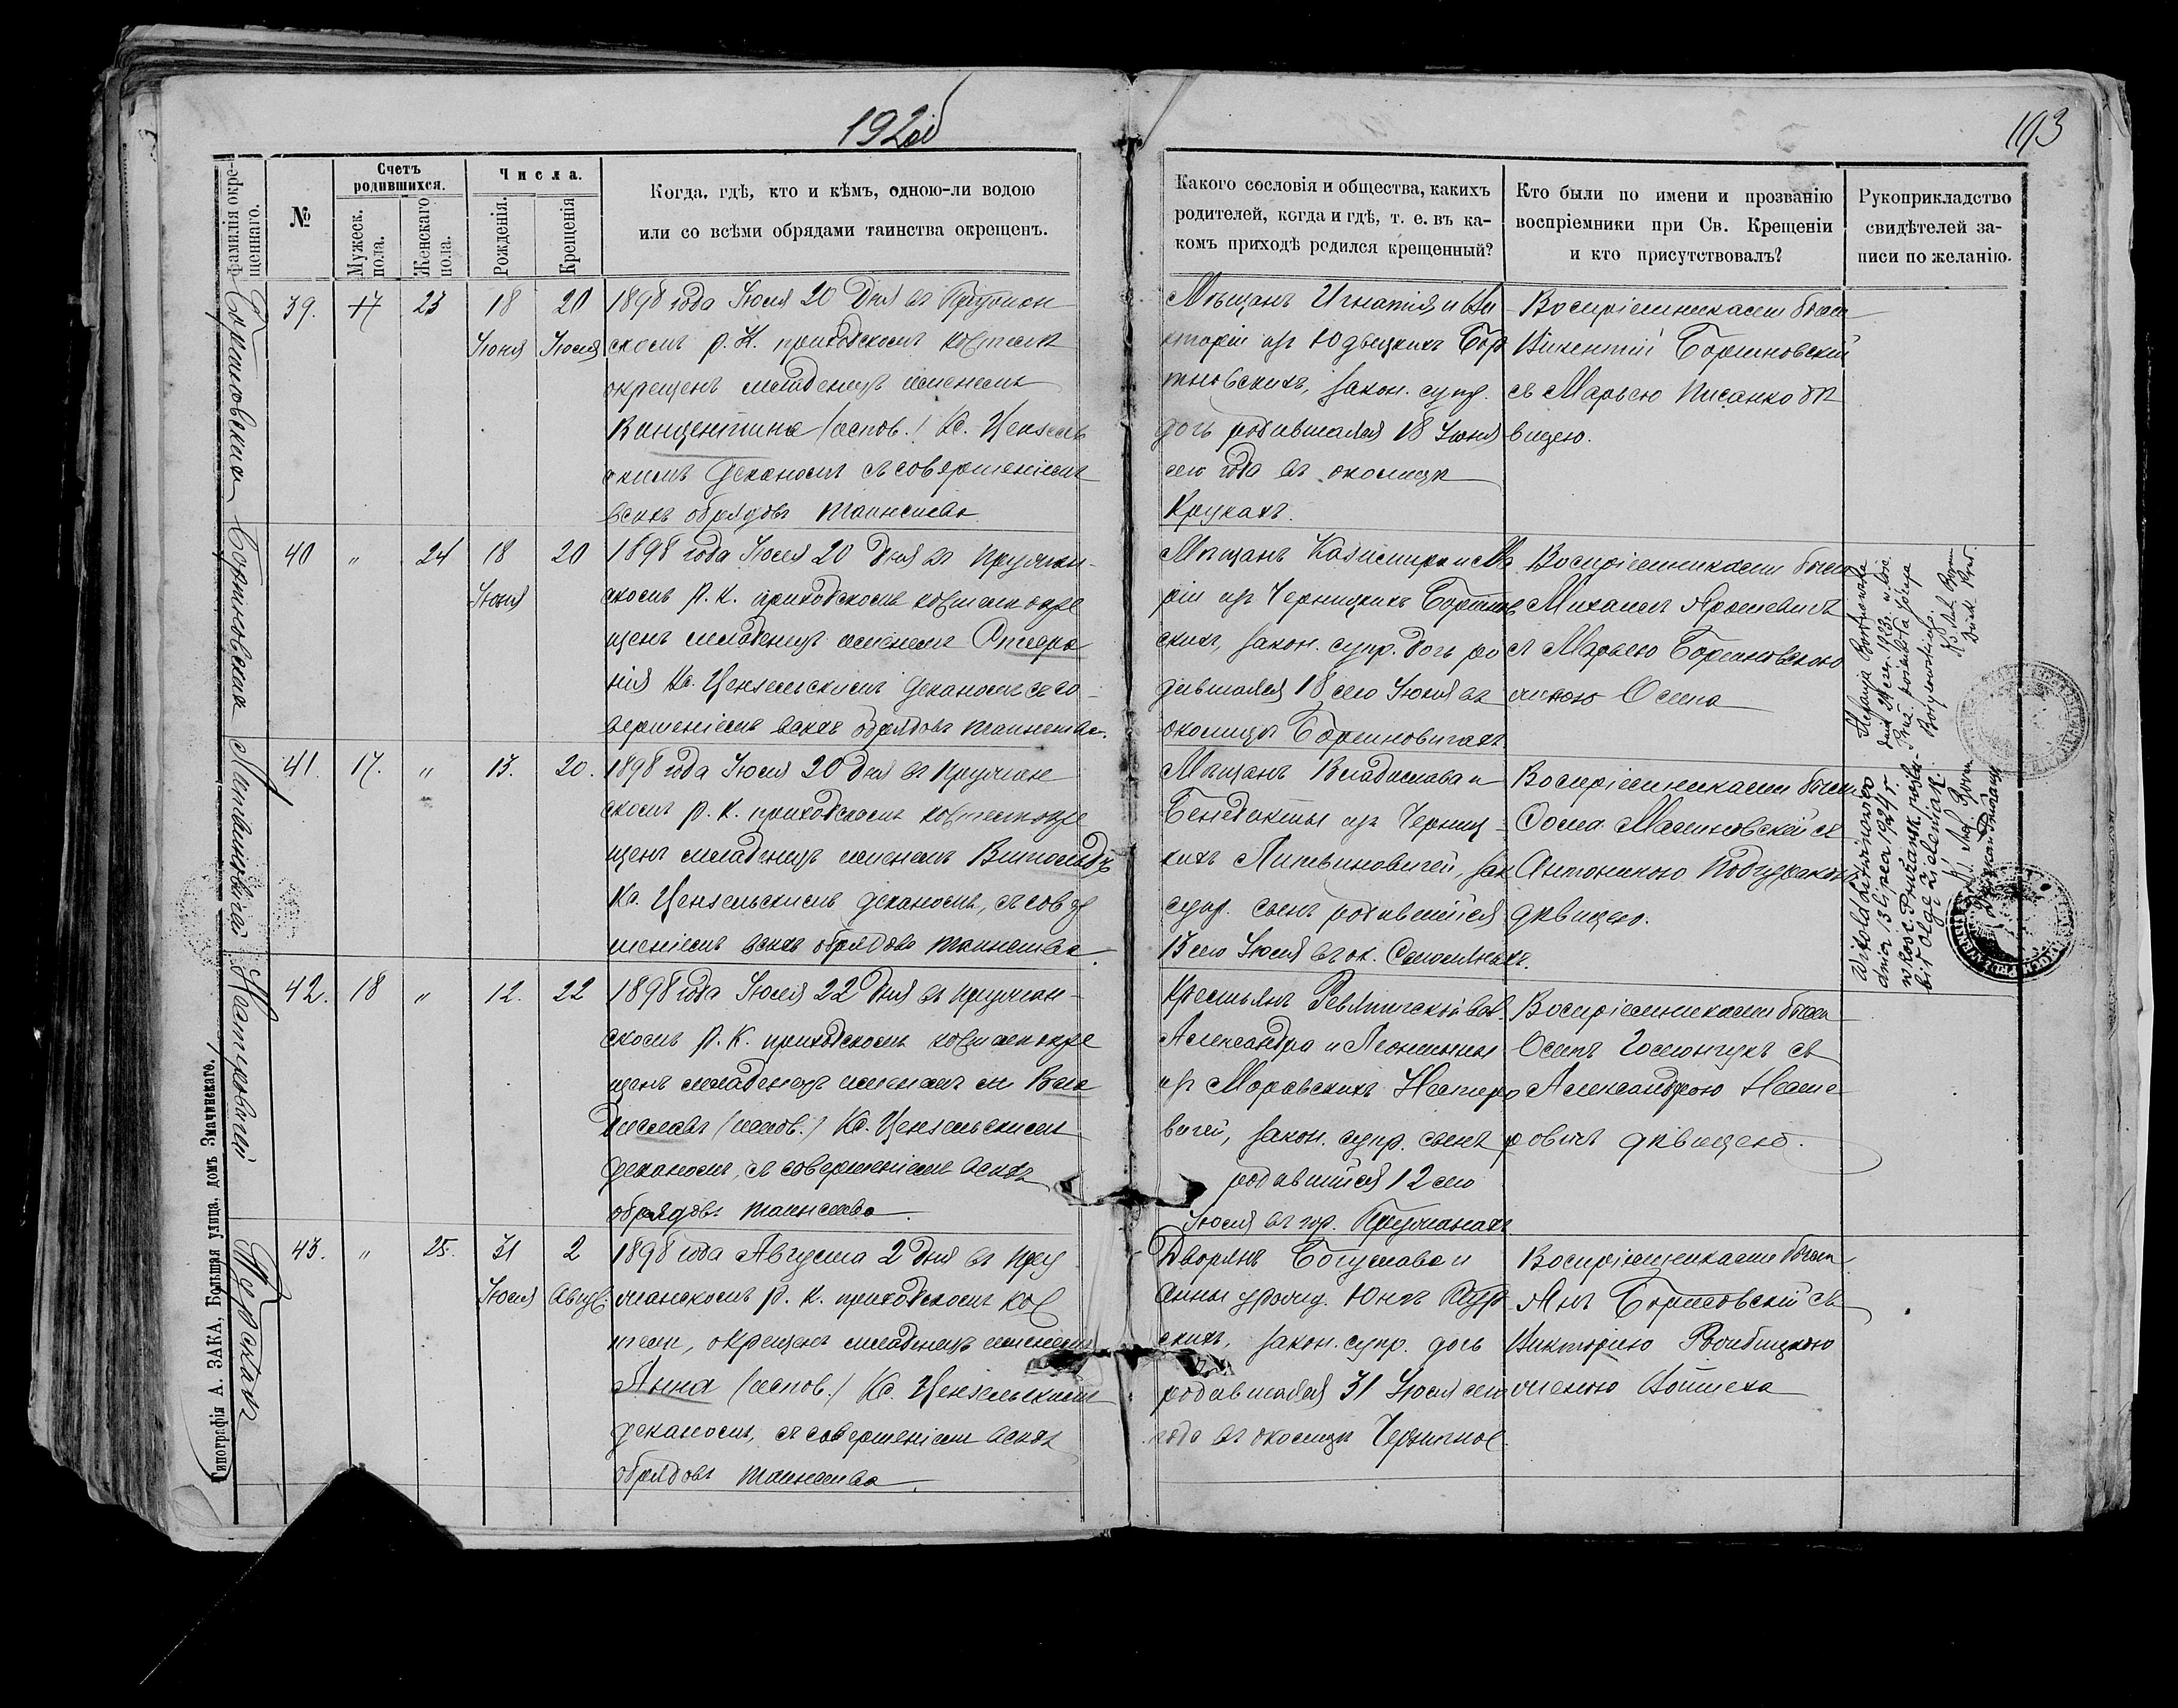 192об
193
Фамилія окре-
щеннаго.
№
Счетъ
родившихся.
Мужеск.
пола.
Женскаго
пола.
Числа.
Рожденія.
Крещенія
Когда, гдѣ, кто и кѣмъ, одною-ли водою
или со всѣми обрядами таинства окрещенъ.
Какого сословія и общества, какихъ
родителей, когда и гдѣ, т. е. въ ка-
комъ приходѣ родился крещенный?
Кто были по имени и прозванію
воспріемники при Св. Крещеніи
и кто присутствовалъ?
Рукоприкладство
свидѣтелей за-
писи по желанію.
Бортновская
39.
17
23
18
Іюня
20
Іюля
1898 года Іюля 20 Дня въ Пружан
скомъ р. К. приходскомъ костелѣ
окрещенъ младенецъ именемъ
Винцентина Кс. Цензель
скимъ Деканомъ съ совершеніемъ
всѣхъ обрядовъ таинства
Мѣщанъ Игнатія и Ви
кторіи изъ Юдыцкихъ Бор
тновскихъ, закон. супр.
дочь родившаяся 18 Іюня
сего года въ околицѣ
Крукахъ.
Воспріемниками были
Викентій Бортновскій
съ Марьею Писанко дѣ
вицею.
Бортновская
40
"
24
18
Іюля
20
1898 года Іюля 20 Дня въ Пружан-
скомъ р. К. приходскомъ костелѣ окре
щенъ младенецъ именемъ Стефа
нія Кс. Цензельскимъ Деканомъ съ со-
вершеніемъ всѣхъ обрядовъ таинства.
Мѣщанъ Казимира и Ма
ріи изъ Черницкихъ Бортнов
скихъ, закон. супр. дочь ро
дившаяся 18 сего Іюля въ
околицѣ Бортновичахъ
Воспріемниками были
Михаилъ Ярошевичъ
съ Марьею Бортновскою
женою Осипа
Stefanja Bortnowska
Литвиновичъ
41.
17.
"
15.
20.
1898 года Іюля 20 дня въ Пружан
скомъ р. К. приходскомъ костелѣ окре
щенъ младенецъ именемъ Витольдъ
Кс. Цензельскимъ деканомъ, съ совер
шеніемъ всѣхъ обрядовъ таинства
Мѣщанъ Владислава и
Бенедикты изъ Черниц-
кихъ Литвиновичей, зак
супр. сынъ родившійся
15 сего Іюля въ ок.
Воспріемниками были
Ѳома Малиновскій съ
Антониною
дѣвицею.
Witold Litwinowicz
dnia 13 lipca 1924 r.
w kośc. Prużańsk. poślu-
bił Olgę Zieleniak.
Нестеровичъ
42.
18
"
12.
22
1898 года Іюля 22 Дня въ Пружан-
скомъ р. К. приходскомъ костелѣ окре
щенъ младенецъ именемъ Вла
диславъ Кс. Цензельскимъ
деканомъ, съ совершеніемъ всѣхъ
обрядовъ таинства.
Крестьянъ Ревятичской вол.
Александра и Леонтины
изъ Моравскихъ Нестеро
вичей, закон. супр. сынъ
родившійся 12 сего
Іюля въ гор. Пружанахъ
Воспріемниками были
Осипъ съ
Александрою Несте
ровичъ дѣвицею.
Пурская
43.
"
25.
31
Іюля
2
Август
1898 года Августа 2 Дня въ Пру
жанскомъ р. К. приходскомъ кос
телѣ, окрещенъ младенецъ именемъ
Анна Кс. Цензельскимъ
деканомъ, съ совершеніемъ всѣхъ
обрядовъ таинства.
Дворянъ Богуслава и
Анны урожд. Юнъ Пур
скихъ, закон. супр. дочь
родившаяся 31 Іюля сего
года въ околицѣ
Воспріемниками были
Янъ Борисовскій съ
Викторіею
женою Войтеха
Типографія А. ЗАКА, Большая улица, домъ Значинскаго.